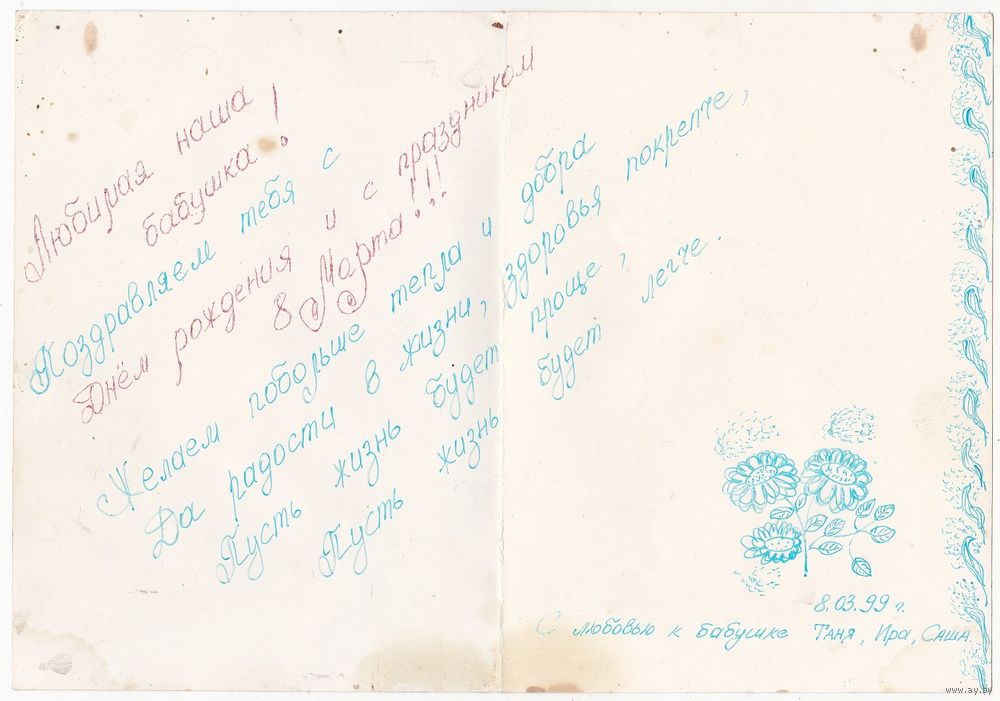 Любимая наша
бабушка!
Поздравляем тебя с
Днём рождения и с праздником
8 Марта!!!
Желаем побольше тепла и добра
Да радости в жизни, здоровья покрепче,
Пусть жизнь будет проще,
Пусть жизнь будет легче.
8.03.99 г.
С любовью к бабушке Таня, Ира, Саша
www.ay.by